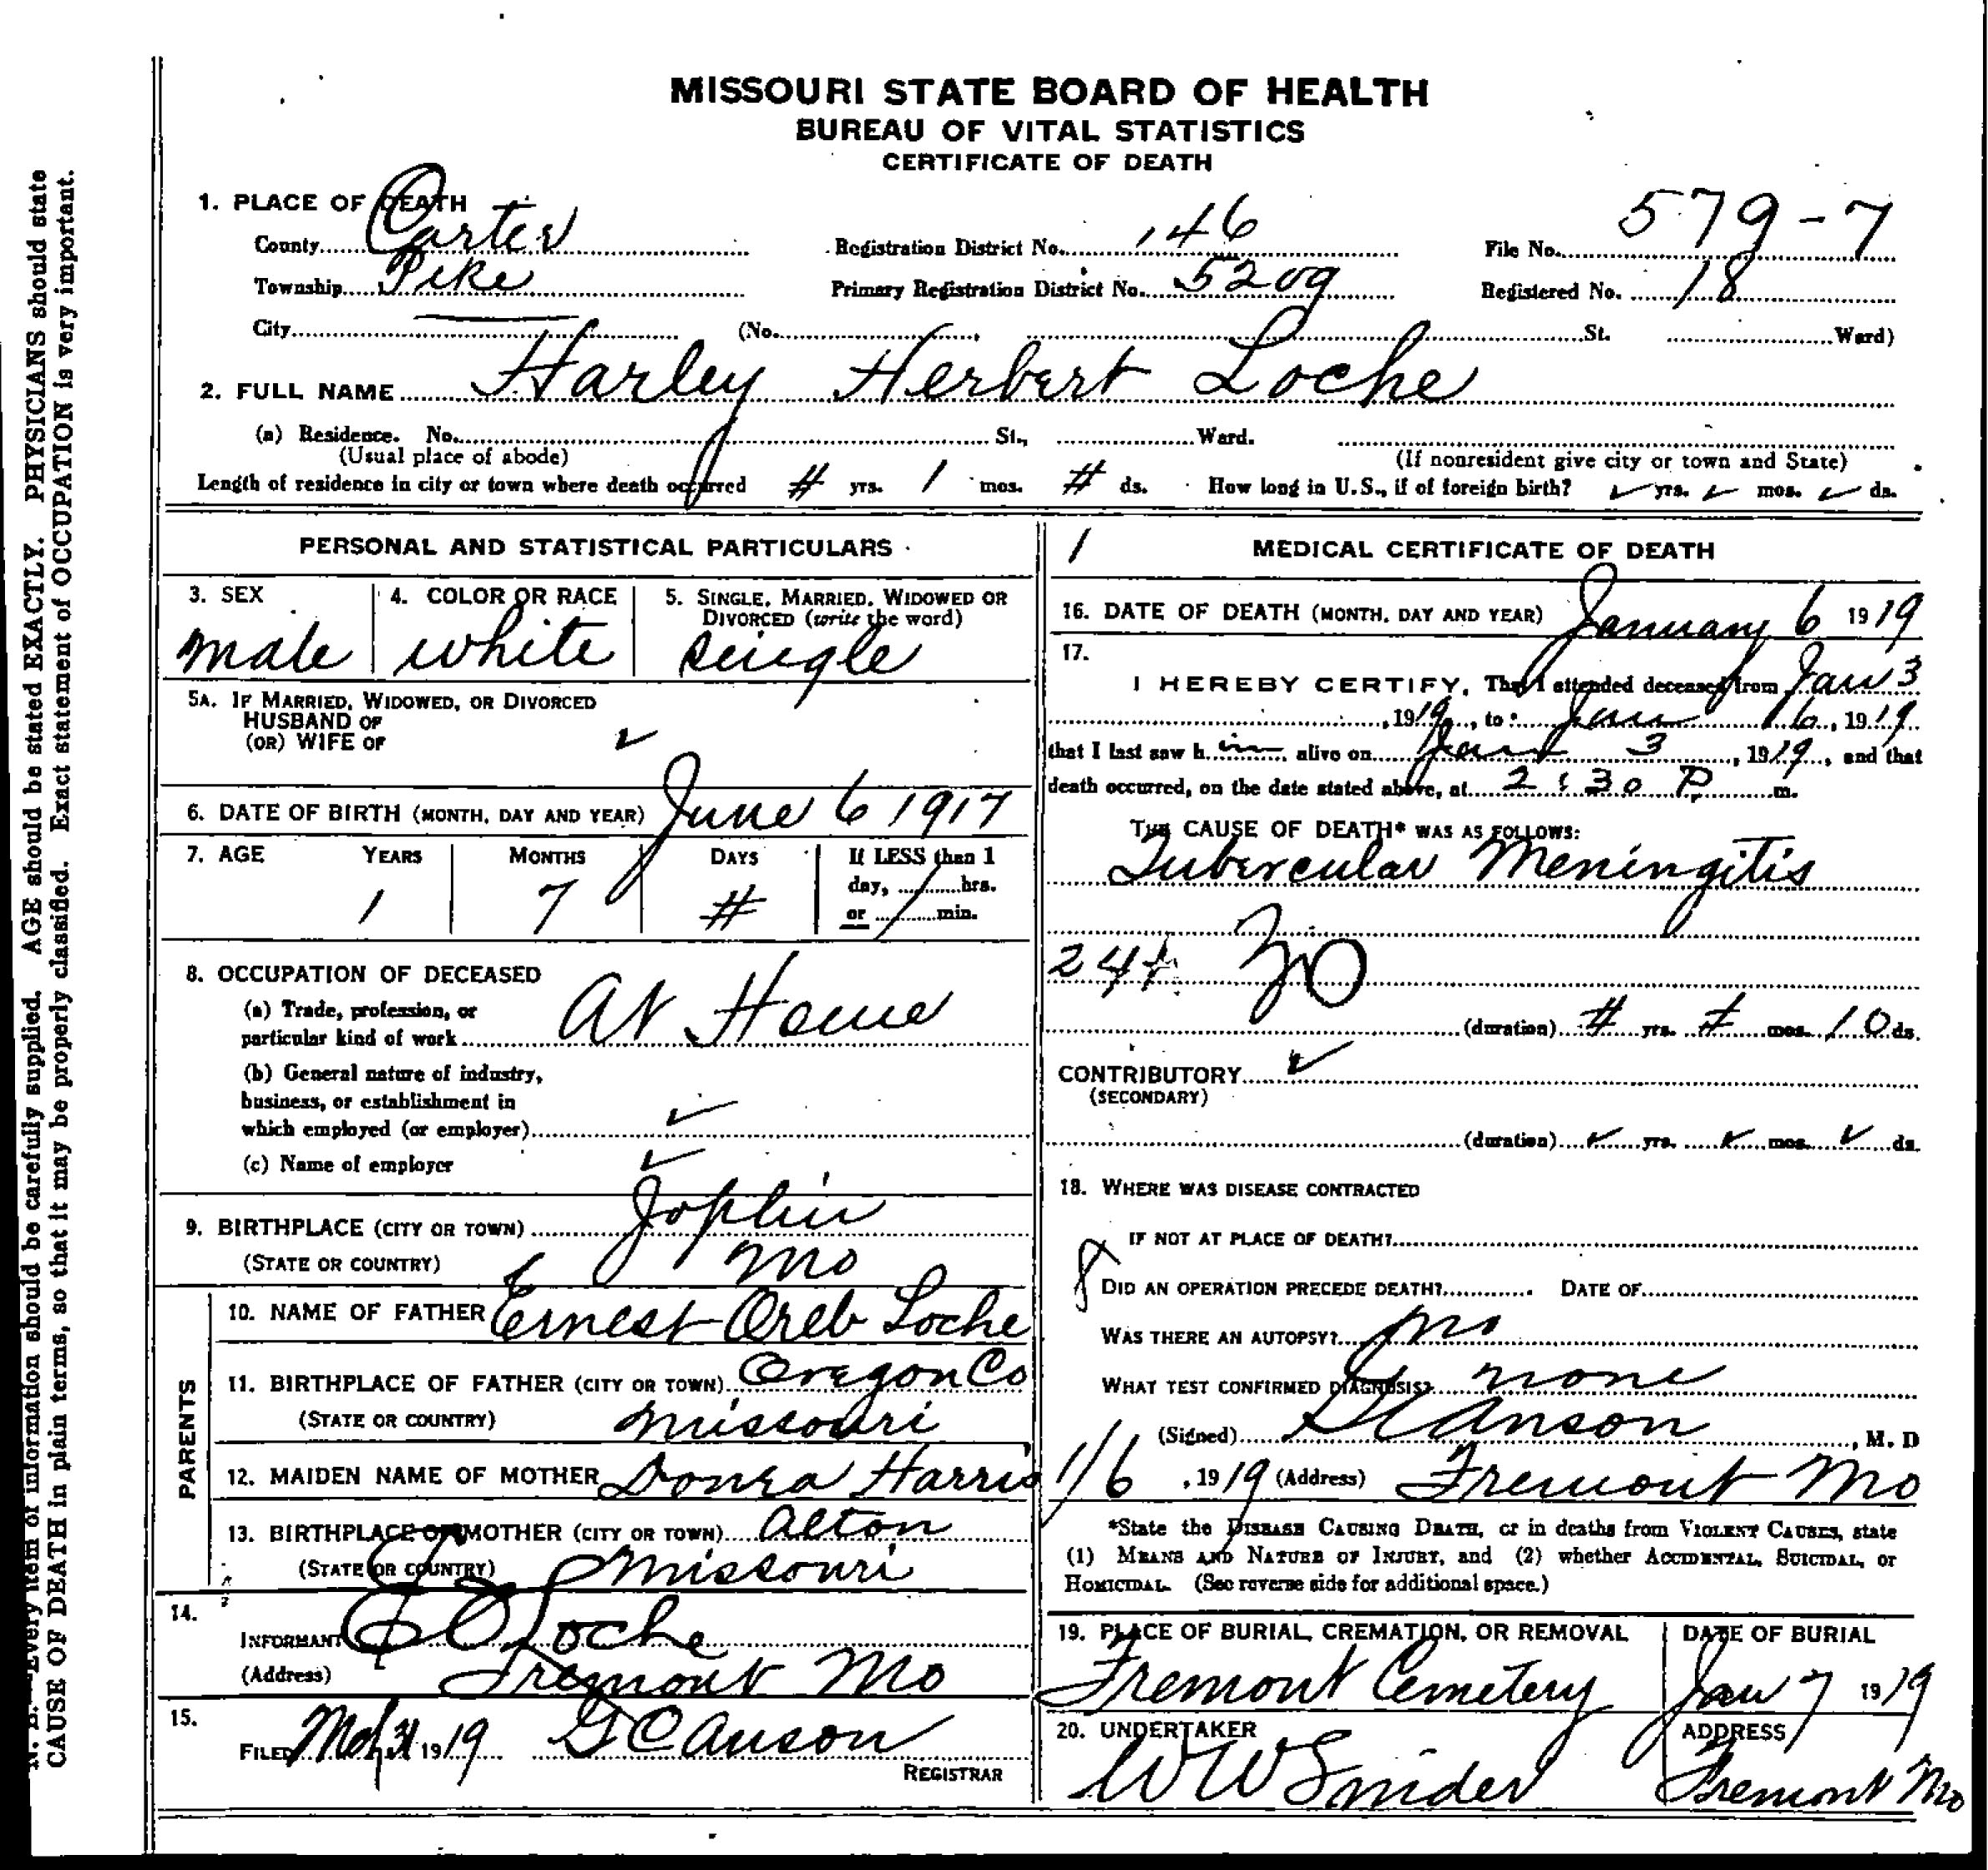 MISSOURI STATE BOARD OF HEALTH
BUREAU OF VITAL STATISTICS
CERTIFICATE OF DEATH
1. PLACE OF DEATH
County Carter Registration District No. 146 File No. 579-7
Township Pike Primary Registration District No. 5209 Registered No. 18
City (No. , St. Ward)
2. FULL NAME Harley Herbert Loche
(a) Residence. No. St., Ward.
(Usual place of abode) (If nonresident give city or town and State)
Length of residence in city or town where death occurred # yrs. 1 mos. # ds. How long in U.S., if of foreign birth? ✓ yrs. ✓ mos. ✓ ds.
PERSONAL AND STATISTICAL PARTICULARS
3. SEX 4. COLOR OR RACE 5. SINGLE, MARRIED, WIDOWED OR
DIVORCED (write the word)
male white single
5A. IF MARRIED, WIDOWED, OR DIVORCED
HUSBAND OF
(OR) WIFE OF ✓
6. DATE OF BIRTH (MONTH, DAY AND YEAR) June 6 1917
7. AGE YEARS MONTHS DAYS If LESS than 1
day, hrs.
1 7 # or min.
8. OCCUPATION OF DECEASED
(a) Trade, profession, or
particular kind of work At Home
(b) General nature of industry,
business, or establishment in
which employed (or employer) ✓
(c) Name of employer ✓
9. BIRTHPLACE (CITY OR TOWN) Joplin
(STATE OR COUNTRY) Mo
PARENTS
10. NAME OF FATHER Ernest Oreb Loche
11. BIRTHPLACE OF FATHER (CITY OR TOWN) Oregon Co
(STATE OR COUNTRY) Missouri
12. MAIDEN NAME OF MOTHER Harris
13. BIRTHPLACE OF MOTHER (CITY OR TOWN) Alton
(STATE OR COUNTRY) Missouri
14.
INFORMANT E O Loche
(Address) Fremont Mo
15.
FILED 1919 G C Anson
REGISTRAR
1 MEDICAL CERTIFICATE OF DEATH
16. DATE OF DEATH (MONTH, DAY AND YEAR) January 6 1919
17.
I HEREBY CERTIFY, That I attended deceased from Jan 3
, 1919, to Jan 6, 1919
that I last saw h im alive on Jan 3, 1919, and that
death occurred, on the date stated above, at 2:30 P m.
THE CAUSE OF DEATH* WAS AS FOLLOWS:
Tubercular Meningitis
(duration) # yrs. # mos. 10 ds.
CONTRIBUTORY ✓
(SECONDARY)
(duration) ✓ yrs. ✓ mos. ✓ ds.
18. WHERE WAS DISEASE CONTRACTED
IF NOT AT PLACE OF DEATH?
DID AN OPERATION PRECEDE DEATH? DATE OF
WAS THERE AN AUTOPSY? no
WHAT TEST CONFIRMED DIAGNOSIS? none
(Signed) G C Anson, M. D
1/6, 1919 (Address) Fremont Mo
*State the DISEASE CAUSING DEATH, or in deaths from VIOLENT CAUSES, state
(1) MEANS AND NATURE OF INJURY, and (2) whether ACCIDENTAL, SUICIDAL, or
HOMICIDAL. (See reverse side for additional space.)
19. PLACE OF BURIAL, CREMATION, OR REMOVAL DATE OF BURIAL
Fremont Cemetery Jan 7 1919
20. UNDERTAKER ADDRESS
W W Snider Fremont Mo
N. B.—Every item of information should be carefully supplied. AGE should be stated EXACTLY. PHYSICIANS should state
CAUSE OF DEATH in plain terms, so that it may be properly classified. Exact statement of OCCUPATION is very important.